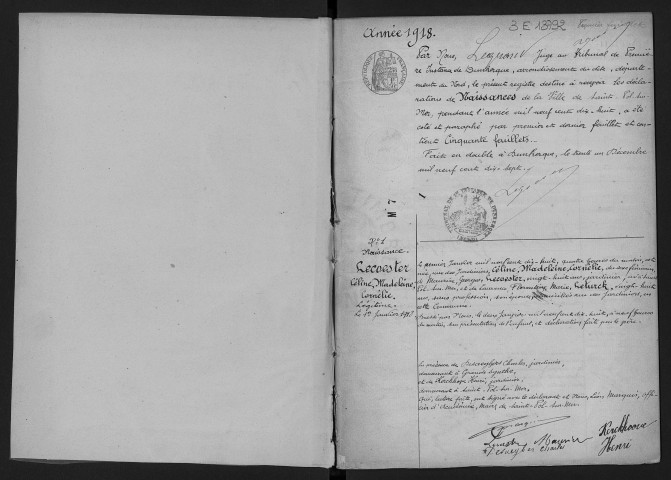 Année 1918.
3 E 13792
Par Nous, Juge au Tribunal de Premiè-
re Instance de Dunkerque, arrondissement du dit, départe-
ment du Nord, le présent registre destiné à recevoir les décla-
rations de Naissances de la Ville de Saint-Pol-sur-
Mer, pendant l'année mil neuf cent dix-huit, a été
coté et paraphé par premier et dernier feuillet et con-
tient Cinquante feuillets.
Fait en double à Dunkerque, le trente un Décembre
mil neuf cent dix-sept.
M 7
1
N° 1
Naissance
Lecoester
Céline, Madeleine,
Cornélie.
Légitime
Le 1er Janvier 1918
Le premier Janvier mil neuf cent dix-huit, quatre heures du matin, est
née, rue des Jardiniers, Céline, Madeleine, Cornélie, du sexe féminin,
de Maurice, Georges, Lecoester, vingt-huit ans, jardinier,
Pol-sur-Mer, et de Florentine Marie, vingt-huit
ans, sans profession, son épouse, domiciliés rue des Jardiniers, en
cette Commune.
Dressé par Nous, le deux Janvier mil neuf cent dix-huit, à neuf heures
du matin, sur présentation de l'enfant, et déclaration faite par le père.
En présence de Charles, jardinier,
demeurant à Grande-Synthe,
et de Kerckhove Henri, jardinier,
demeurant à Saint-Pol-sur-Mer,
Qui, lecture faite, ont signé avec le déclarant et Nous, Léon Marquis, offi-
cier d'Académie, Maire de Saint-Pol-sur-Mer.
Maurice
Charles
Kerckhoove
Henri